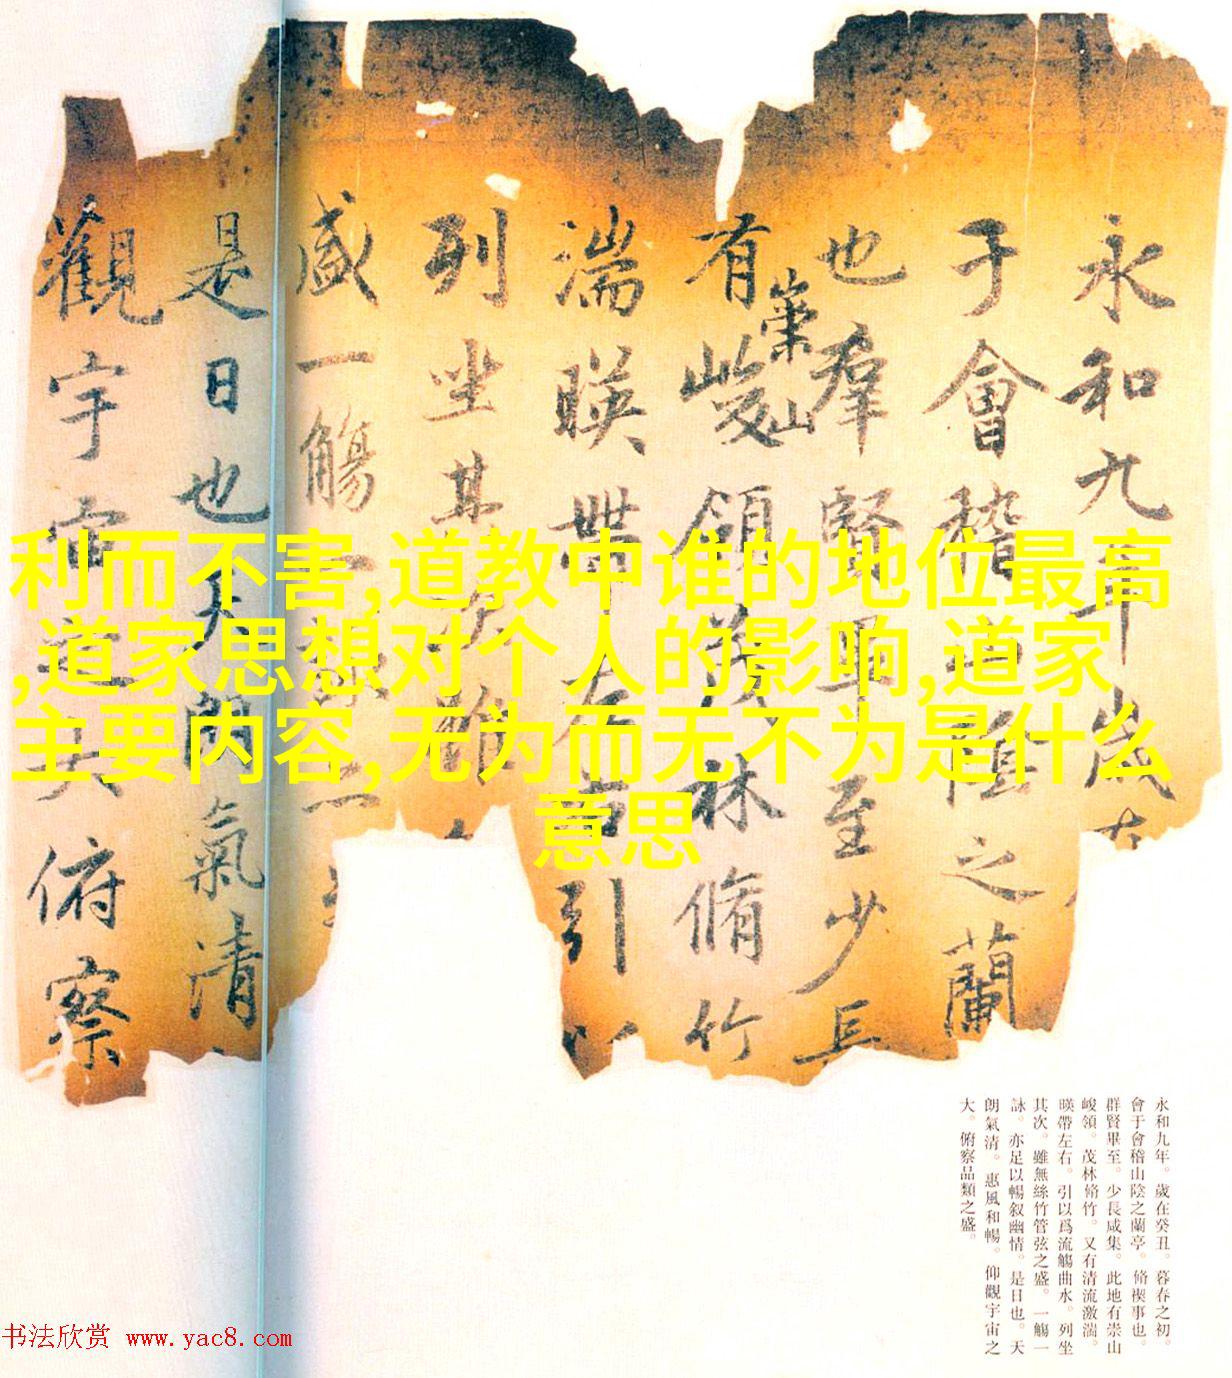 永和九年歲在
于會稽山陰之蘭
也羣賢畢至少長
有崇山峻領茂林脩竹
湍暎帶左右引以
列坐其
盛一觴一詠
是日也天朗氣清
觀宇宙之大俯察
利而不害,道教中谁的地位最高
,道家思想对个人的影响,道家
主要内容,无为而无不为是什么
意思
永和九年。歲在癸丑。暮春之初。
會于會稽山陰之蘭亭。脩禊事也。
群賢畢至。少長咸集。此地有崇山
峻領。茂林脩竹。又有清流激湍。
暎帶左右。引以爲流觴曲水。列坐
其次。雖無絲竹管弦之盛。一觴一
詠。亦足以暢叙幽情。是日也。天
朗氣清。惠風和暢。仰觀宇宙之
大。俯察品類之盛。
书法欣赏 www.yac8.com